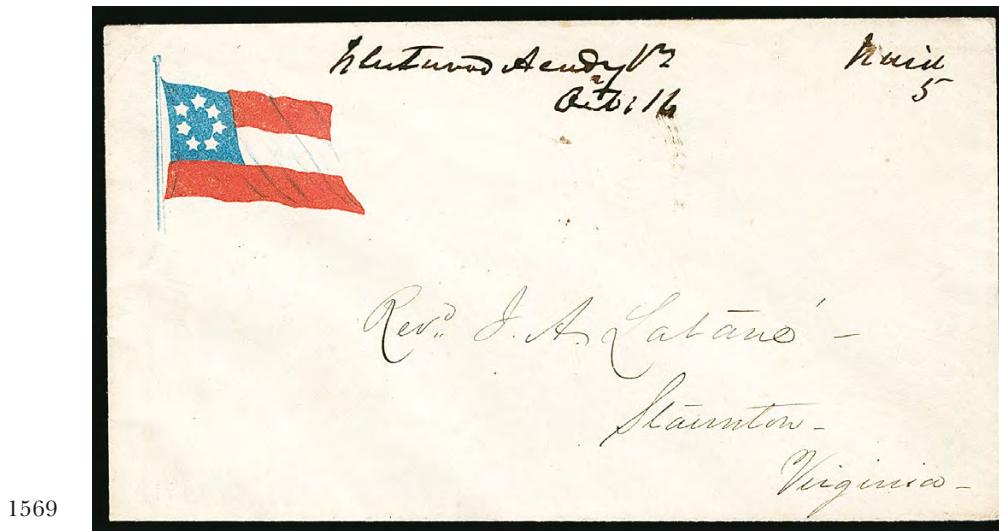 Fleetwood Academy Va
Oct 16
Paid
5
Revd. J. A. Latāné –
Staunton –
Virginia –
1569